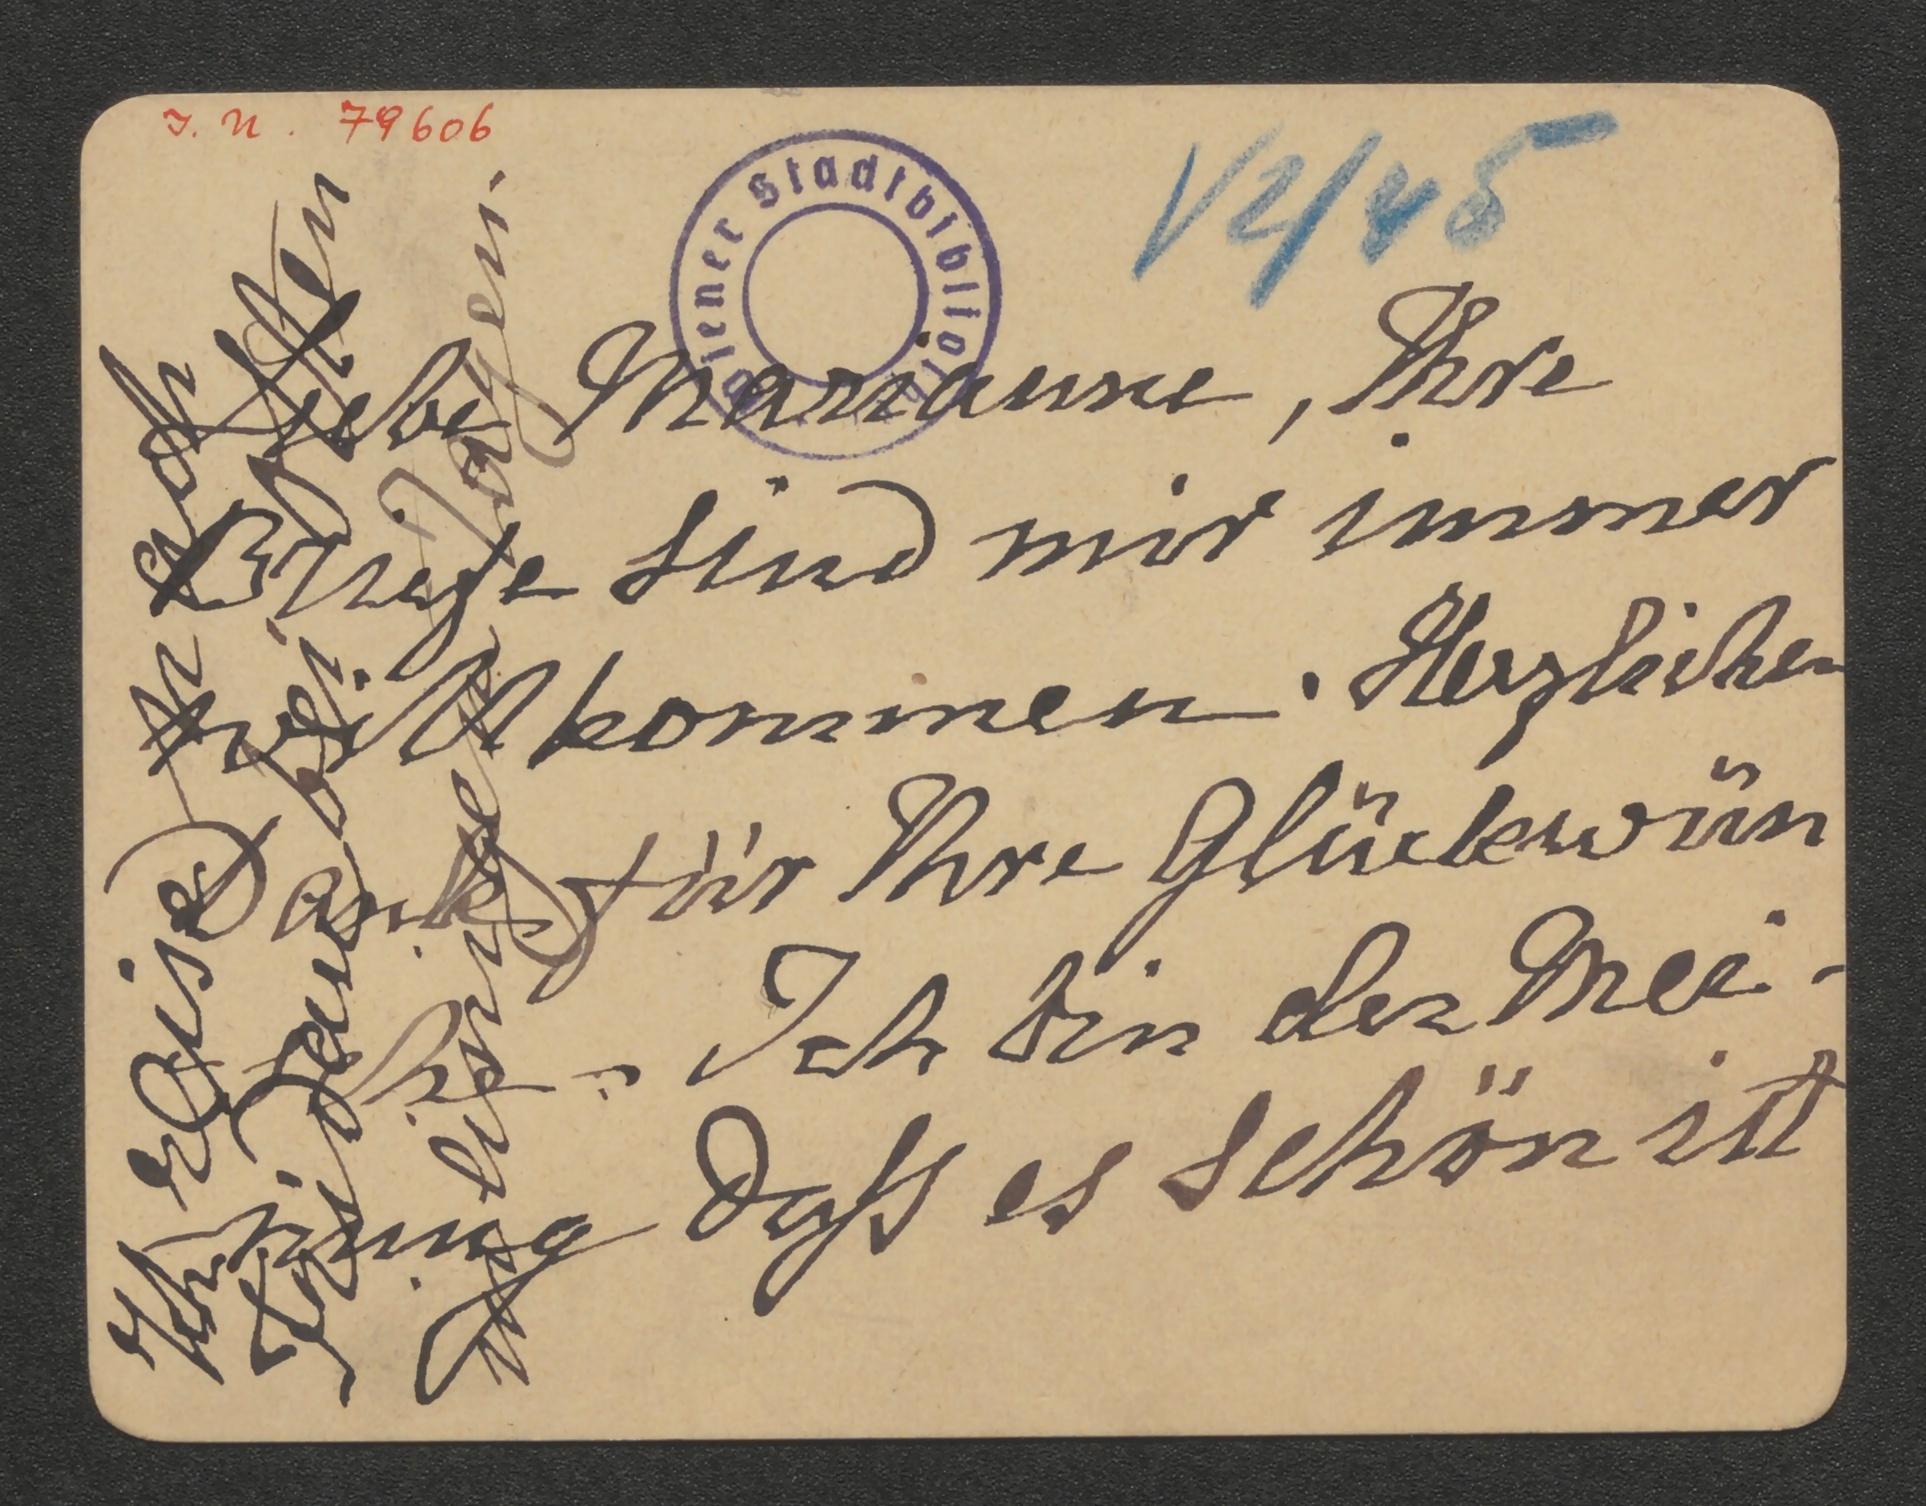 I. N. 79606
Wiener Stadtbibliothek
V2/45
Liebe Marianne, Ihre
Briefe sind mir immer
willkommen. Herzlichen
Dank für Ihre Glückwün
sche. Ich bin der Mei-
nung daß es schön ist
Ihre Reise nach
dabei